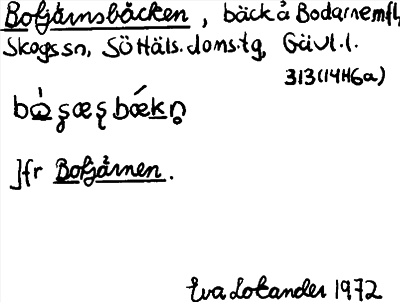 Botjärnsbäcken, bäck å Bodarne mfl,
Skogs sn, S Häls. doms. tg, Gävl. l.
313(14H6a)
Jfr Botjärnen.
Eva Lokander 1972